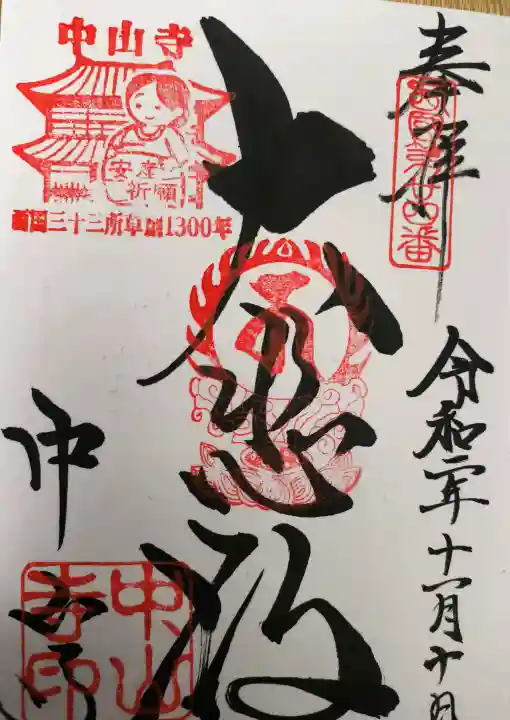 奉拝
西国第廿四番
令和二年十一月十日
大悲殿
中山寺
安産
祈願
西国三十三所草創1300年
中山寺
中山
寺印